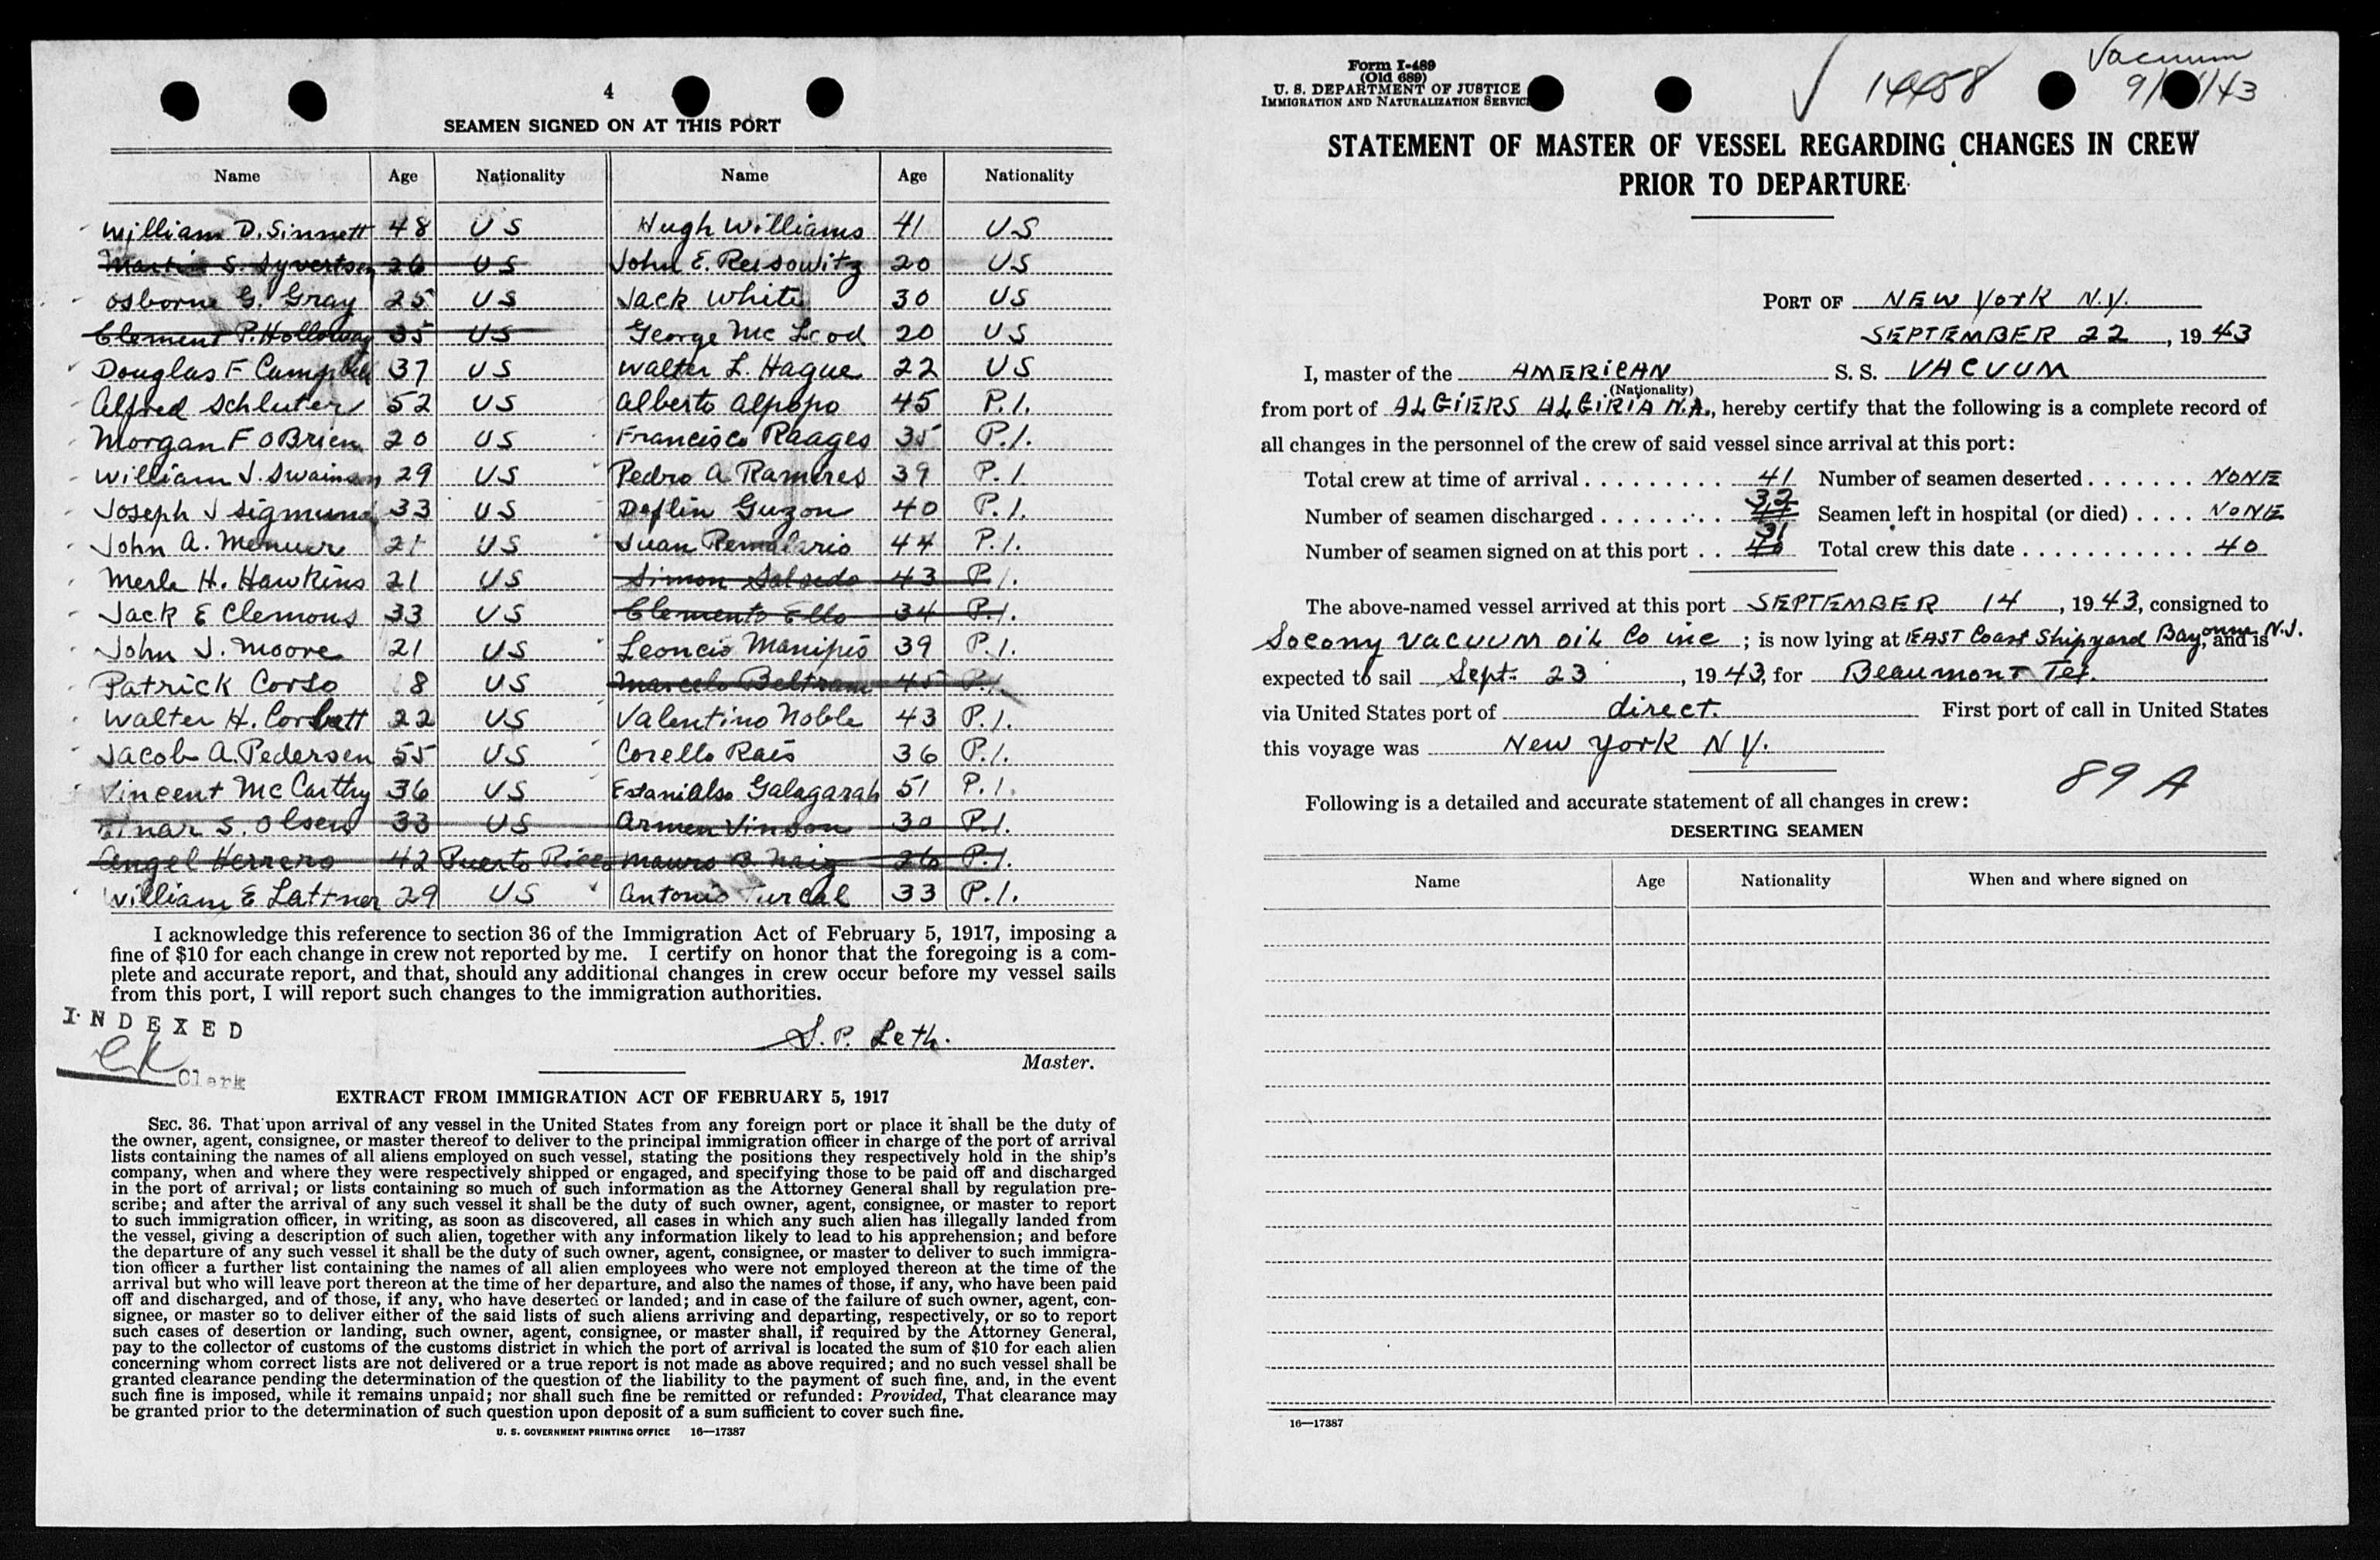 4
SEAMEN SIGNED ON AT THIS PORT
Name Age Nationality Name Age Nationality
William D. Sinnett 48 US Hugh Williams 41 US
Martin S. Syvertsen 26 US John E. Reisowitz 20 US
Osborne G. Gray 25 US Jack White 30 US
Clement P. Holloway 35 US George Mc Leod 20 US
Douglas F Campbell 37 US Walter L. Hague 22 US
Alfred Schluter 52 US Alberto Alpopo 45 P.I.
Morgan F OBrien 20 US Francisco Raages 35 P.I.
William J. Swainson 29 US Pedro A Ramires 39 P.I.
Joseph J Sigmund 33 US Deflin Guzon 40 P.I.
John A. 21 US Juan 44 P.I.
Merle H. Hawkins 21 US Simon Salsedo 43 P.I.
Jack E Clemons 33 US Clemento Ello 34 P.I.
John J. Moore 21 US Leoncio Manipis 39 P.I.
Patrick Corso 8 US Marcelo Beltram 45 P.I.
Walter H. Corbett 22 US Valentino Noble 43 P.I.
Jacob A. Pedersen 55 US Corello Rais 36 P.I.
Vincent McCarthy 36 US Estanialso Galagarah 51 P.I.
Einar S. Olsen 33 US Armen Vinson 30 P.I.
Angel Herrero 42 Puerto Rico Mauro B. Naig 26 P.I.
William E Lattner 29 US Antonio Turcal 33 P.I.
I acknowledge this reference to section 36 of the Immigration Act of February 5, 1917, imposing a
fine of $10 for each change in crew not reported by me. I certify on honor that the foregoing is a com-
plete and accurate report, and that, should any additional changes in crew occur before my vessel sails
from this port, I will report such changes to the immigration authorities.
INDEXED
CK Clerk
S. P. Leth.
Master.
EXTRACT FROM IMMIGRATION ACT OF FEBRUARY 5, 1917
SEC. 36. That upon arrival of any vessel in the United States from any foreign port or place it shall be the duty of
the owner, agent, consignee, or master thereof to deliver to the principal immigration officer in charge of the port of arrival
lists containing the names of all aliens employed on such vessel, stating the positions they respectively hold in the ship's
company, when and where they were respectively shipped or engaged, and specifying those to be paid off and discharged
in the port of arrival; or lists containing so much of such information as the Attorney General shall by regulation pre-
scribe; and after the arrival of any such vessel it shall be the duty of such owner, agent, consignee, or master to report
to such immigration officer, in writing, as soon as discovered, all cases in which any such alien has illegally landed from
the vessel, giving a description of such alien, together with any information likely to lead to his apprehension; and before
the departure of any such vessel it shall be the duty of such owner, agent, consignee, or master to deliver to such immigra-
tion officer a further list containing the names of all alien employees who were not employed thereon at the time of the
arrival but who will leave port thereon at the time of her departure, and also the names of those, if any, who have been paid
off and discharged, and of those, if any, who have deserted or landed; and in case of the failure of such owner, agent, con-
signee, or master so to deliver either of the said lists of such aliens arriving and departing, respectively, or so to report
such cases of desertion or landing, such owner, agent, consignee, or master shall, if required by the Attorney General,
pay to the collector of customs of the customs district in which the port of arrival is located the sum of $10 for each alien
concerning whom correct lists are not delivered or a true report is not made as above required; and no such vessel shall be
granted clearance pending the determination of the question of the liability to the payment of such fine, and, in the event
such fine is imposed, while it remains unpaid; nor shall such fine be remitted or refunded: Provided, That clearance may
be granted prior to the determination of such question upon deposit of a sum sufficient to cover such fine.
U. S. GOVERNMENT PRINTING OFFICE 16—17387
Form I-489
(Old 689)
U. S. DEPARTMENT OF JUSTICE
IMMIGRATION AND NATURALIZATION SERVICE
14458
Vacuum
9/ /43
STATEMENT OF MASTER OF VESSEL REGARDING CHANGES IN CREW
PRIOR TO DEPARTURE
PORT OF NEW York N.Y.
SEPTEMBER 22, 1943
I, master of the AMERICAN S. S. VACUUM
(Nationality)
from port of ALGIERS ALGIRIA N.A., hereby certify that the following is a complete record of
all changes in the personnel of the crew of said vessel since arrival at this port:
Total crew at time of arrival 41 Number of seamen deserted NONE
Number of seamen discharged 32 Seamen left in hospital (or died) NONE
Number of seamen signed on at this port 31 40 Total crew this date 40
The above-named vessel arrived at this port SEPTEMBER 14, 1943, consigned to
Socony Vacuum Oil Co inc; is now lying at EAST Coast Shipyard Bayonne N.J., and is
expected to sail Sept. 23, 1943, for Beaumont Tex.
via United States port of direct. First port of call in United States
this voyage was New York N Y.
89 A
Following is a detailed and accurate statement of all changes in crew:
DESERTING SEAMEN
Name Age Nationality When and where signed on
16—17387